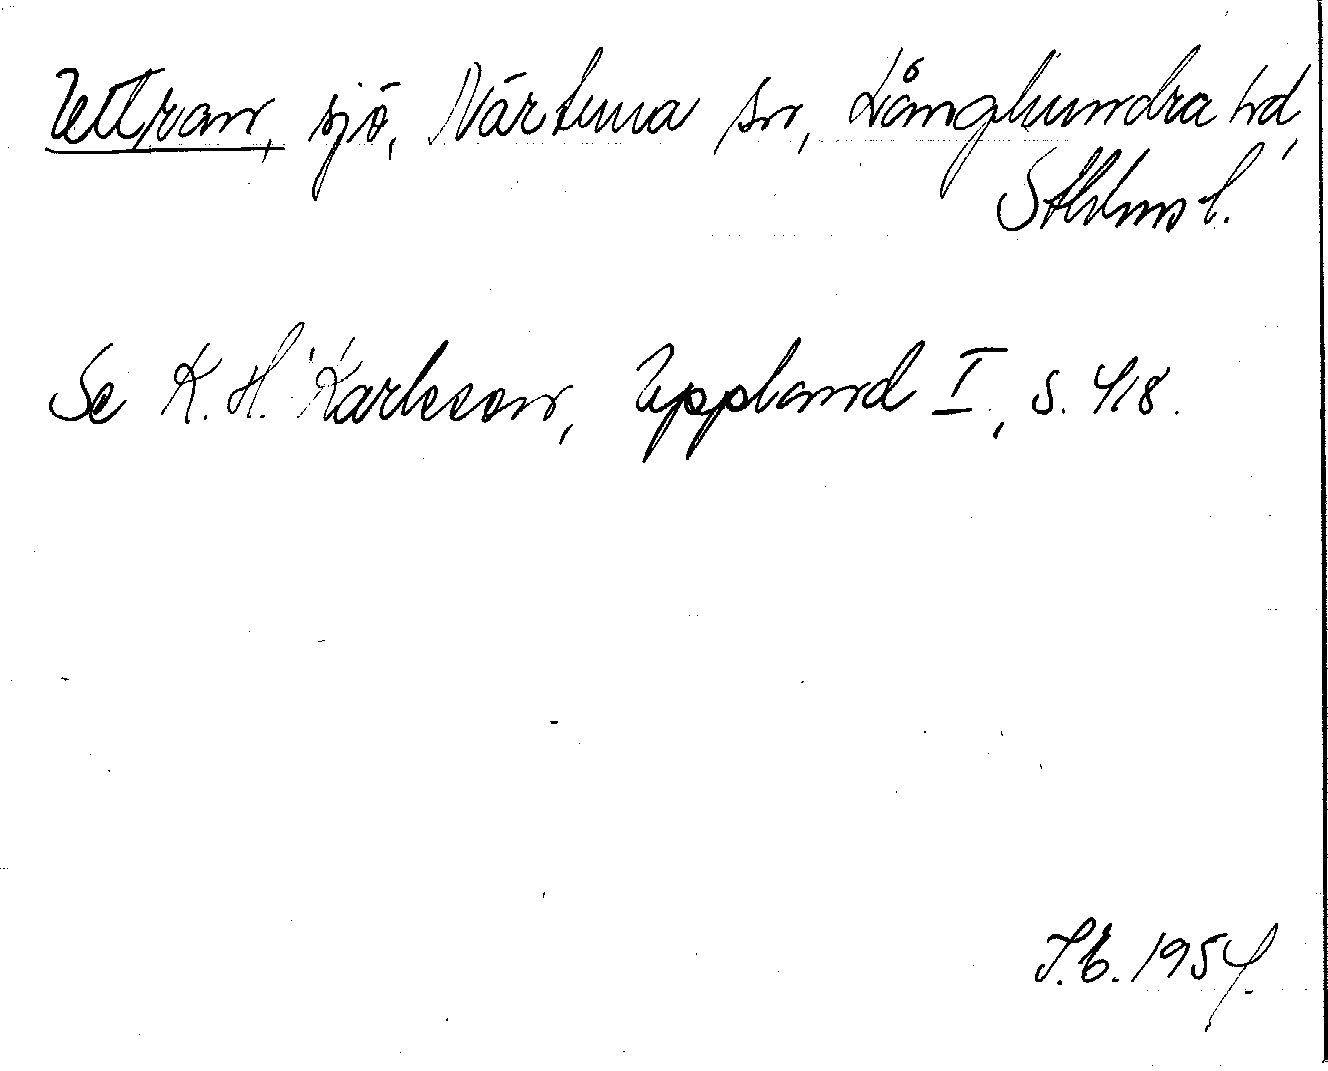 Uttran, sjö, Närtuna sn, Långhundra hd,
Sthlms l.
Se K. H. Karlsson, Uppland I, s. 418.
I.E. 1954.